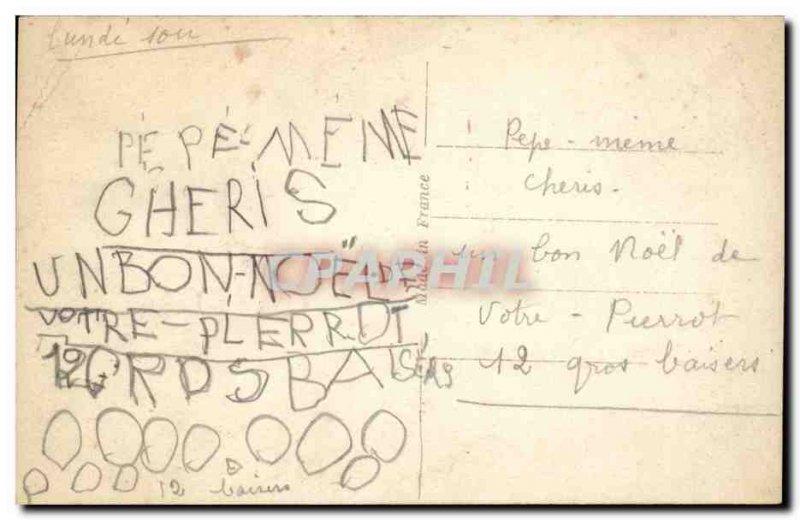 Lundi soir
PÉPÉ-MÉMÉ
CHERIS
UN BON-NOËL-DE
VOTRE-PIERROT
12 GROS BAISERS
12 baisers
Pepe - meme
cheris.
un bon Noël de
votre - Pierrot
12 gros baisers
Made in France
CPAPHIL